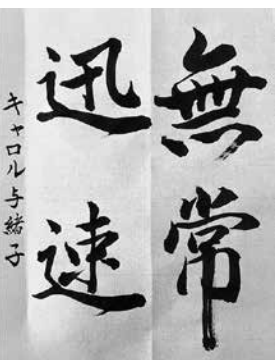 無常
迅速
キャロル与緒子